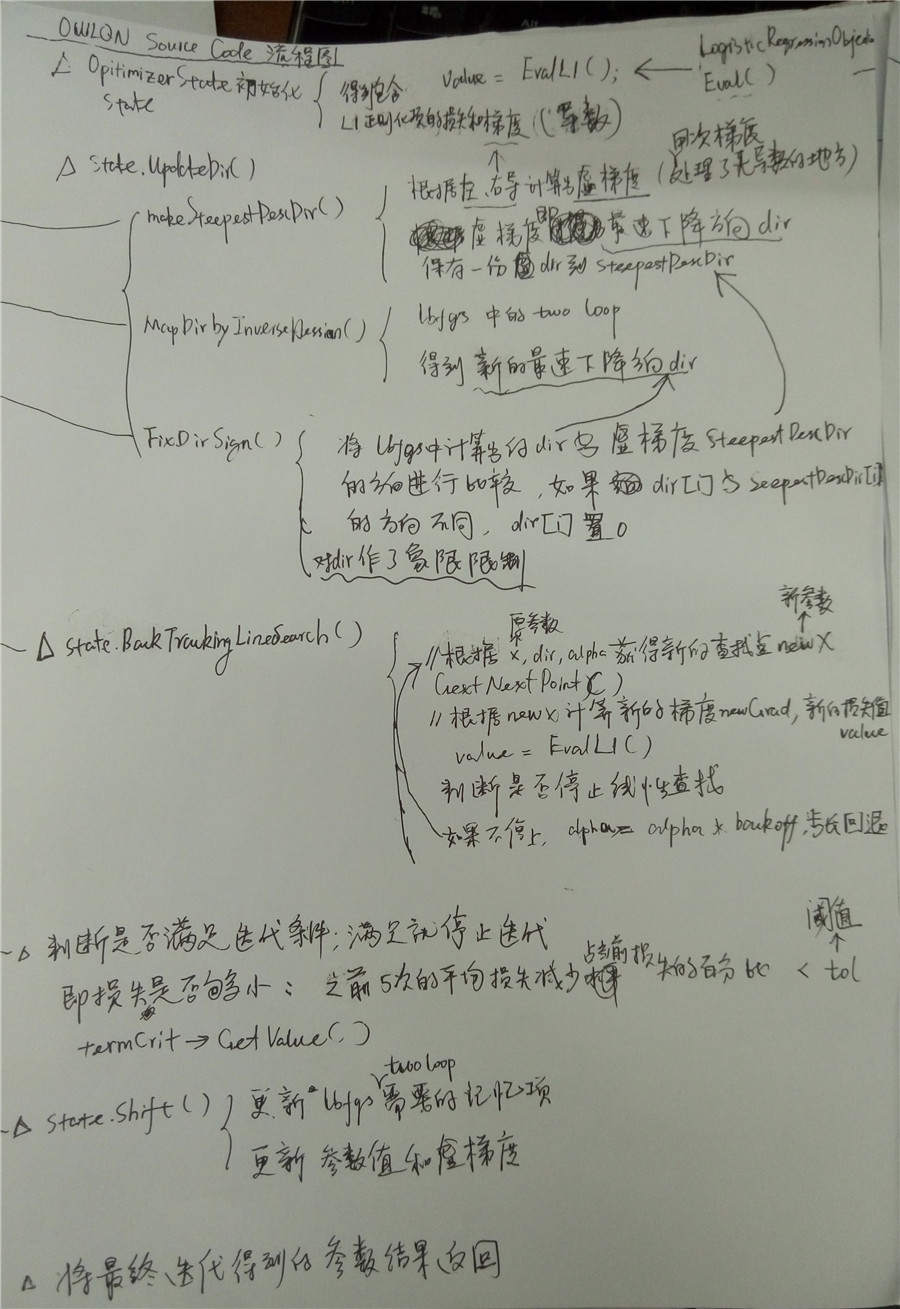 OWLQN Source Code 流程图
△ OpitimizerState 初始化
State
得到包含
L1正则化项的损失和梯度 (导数)
value = EvalL1(); ←
LogisticRegressionObjec
Eval()
△ state.UpdateDir()
makeSteepestDescDir()
用次梯度
根据左、右导计算出虚梯度 (处理了无导数的地方)
虚梯度即最速下降方向 dir
保存一份dir到 SteepestDescDir
MapDirbyInverseHessian()
lbfgs 中的 two loop
得到 新的最速下降方向 dir
FixDirSign()
将 lbfgs中计算出的dir与虚梯度 SteepestDescDir
的方向进行比较, 如果 dir[i]与 SeepestDescDir[i]
的方向不同, dir[i] 置0
对dir作了象限限制
△ state.BackTrackingLineSearch()
原参数
新参数
// 根据 x, dir, alpha 获得新的查找点 newX
GextNextPoint()
// 根据newx计算新的梯度newGrad, 新的损失值
value
value = EvalL1()
判断是否停止线性查找
如果不停止, alpha= alpha * backoff, 步长回退
△ 判断是否满足迭代条件; 满足就停止迭代
阈值
即损失是否够小: 之前5次的平均损失减少占当前损失的百分比 < tol
termCrit → GetValue(,)
△ State.Shift()
two loop
更新 lbfgs 需要的记忆项
更新 参数值和虚梯度
△ 将最终迭代得到的参数结果返回